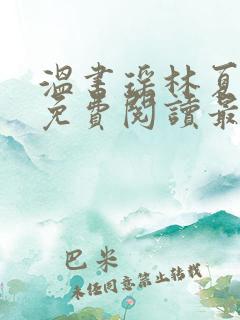 溫書瑤林夏
免費閱讀最
巴米
未經同意禁止轉載